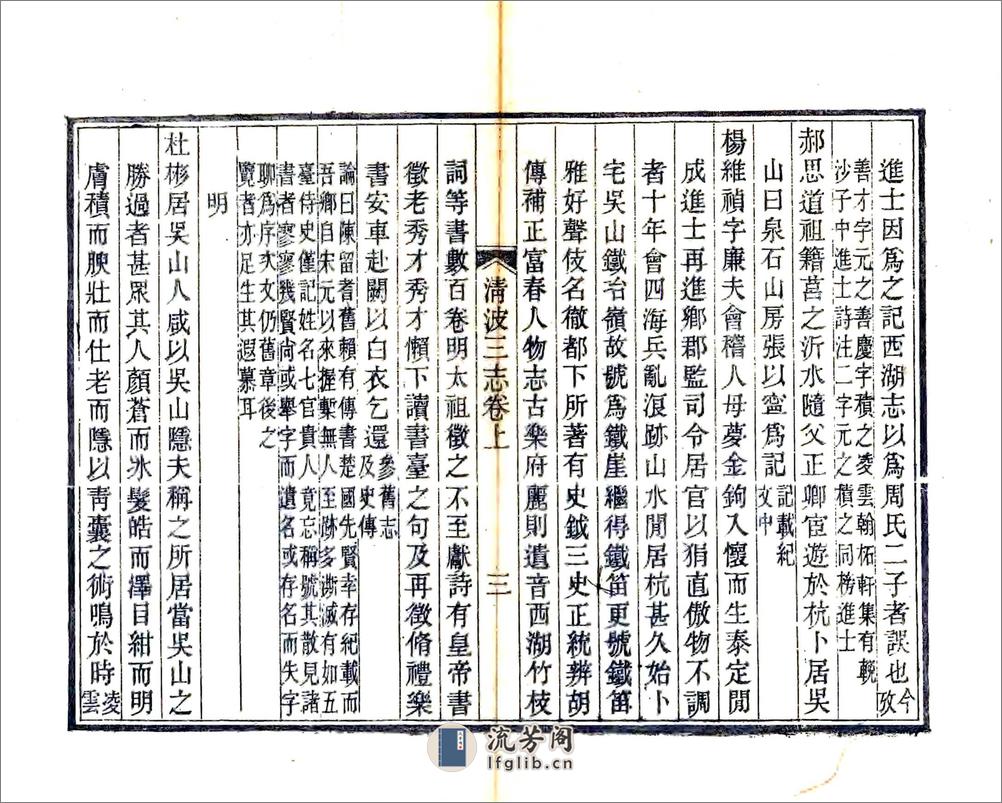 進士因爲之記西湖志以爲周氏二子者誤也今攷
善才字元之善慶字積之凌雲翰柘軒集有輓
沙子中進士詩注二字元之積之同榜進士
郝思道祖籍莒之沂水隨父正卿宦遊於杭卜居吳
山曰泉石山房張以寧爲記記載紀文中
楊維禎字廉夫會稽人母夢金鉤入懷而生泰定閒
成進士再進鄉郡監司令居官以狷直傲物不調
者十年會四海兵亂浪跡山水閒居杭甚久始卜
宅吳山鐵冶嶺故號爲鐵崖繼得鐵笛更號鐵笛
雅好聲伎名徹都下所著有史鉞三史正統辨胡
傳補正富春人物志古樂府麗則遺音西湖竹枝
清波三志卷上
三
詞等書數百卷明太祖徵之不至獻詩有皇帝書
徵老秀才秀才懶下讀書臺之句及再徵脩禮樂
書安車赴闕以白衣乞還參舊志及史傳
論曰陳留耆舊賴有傳書楚國先賢幸存紀載而
吾鄉自宋元以來握槧無人至跡多漸滅有如五
臺侍史僅記姓名七官貴人竟忘稱號其散見諸
書者寥寥幾賢尚或舉字而遺名或存名而失字
聊爲序次文仍舊章後之
覽者亦足生其遐慕耳
明
杜彬居吳山人咸以吳山隱夫稱之所居當吳山之
勝過者甚眾其人顏蒼而氷髮皓而澤目紺而明
膚積而腴壯而仕老而隱以青囊之術鳴於時凌雲
流芳阁
lfglib.cn